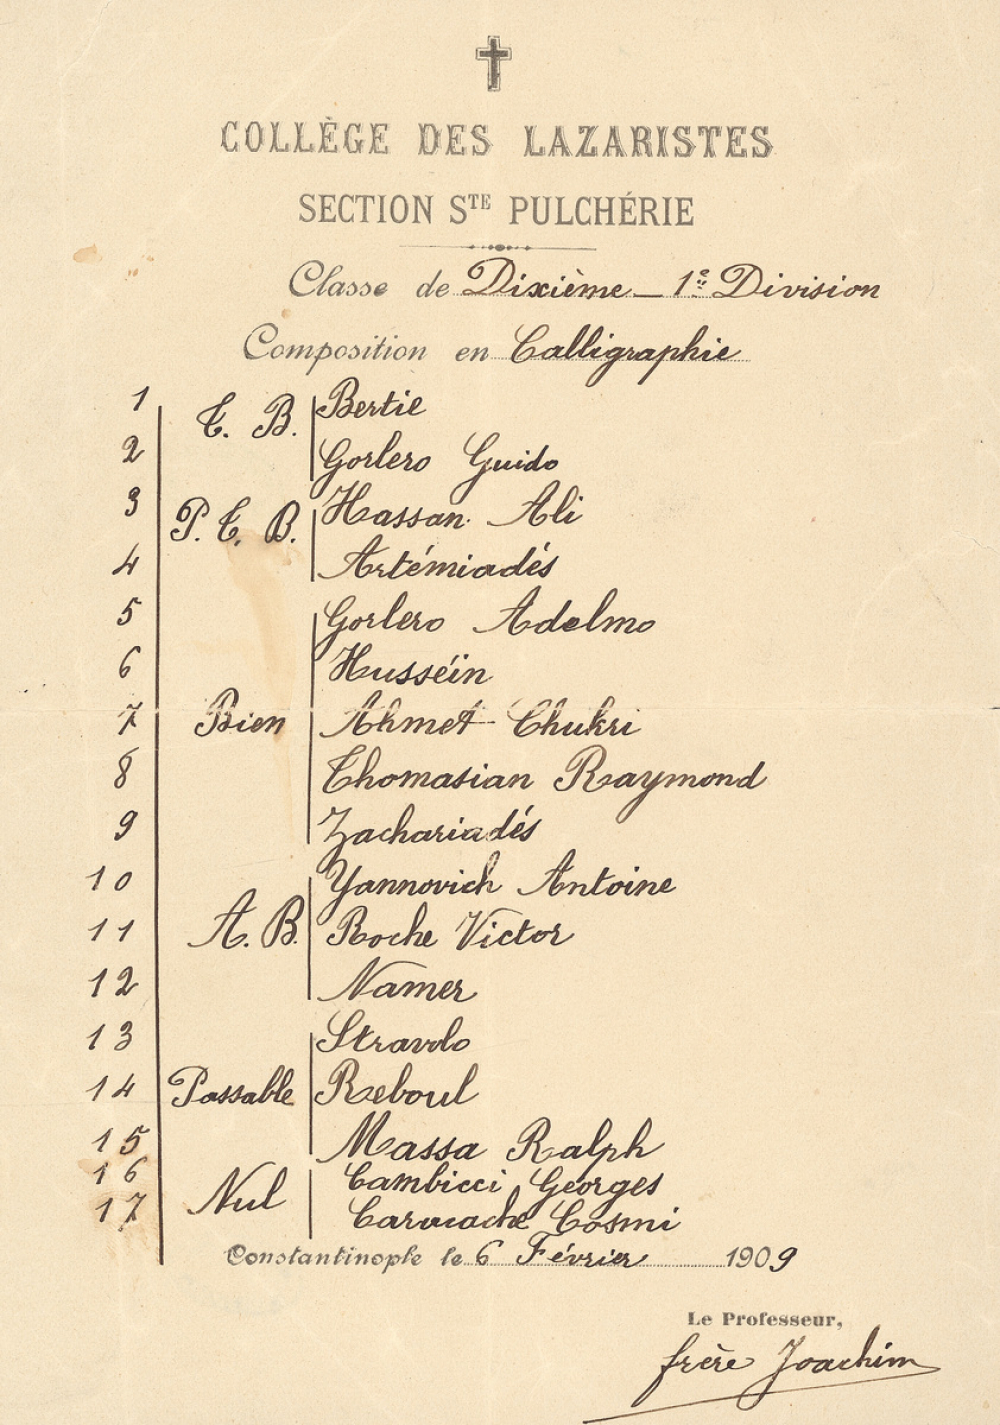 COLLÈGE DES LAZARISTES
SECTION STE PULCHÉRIE
Classe de Dixième - 1re Division
Composition en Calligraphie
1 T. B. Bertie
2 Gorlero Guido
3 P. T. B. Hassan Ali
4 Artémiadés
5 Gorlero Adelmo
6 Husséin
7 Bien Ahmet Chukri
8 Thomasian Raymond
9 Zachariadés
10 Yannovich Antoine
11 A. B. Roche Victor
12 Namer
13 Stravolo
14 Passable Reboul
15 Massa Ralph
16 Nul Cambicci Georges
17 Caracache Cosmi
Constantinople le 6 Février 1909
Le Professeur,
frère Joachim